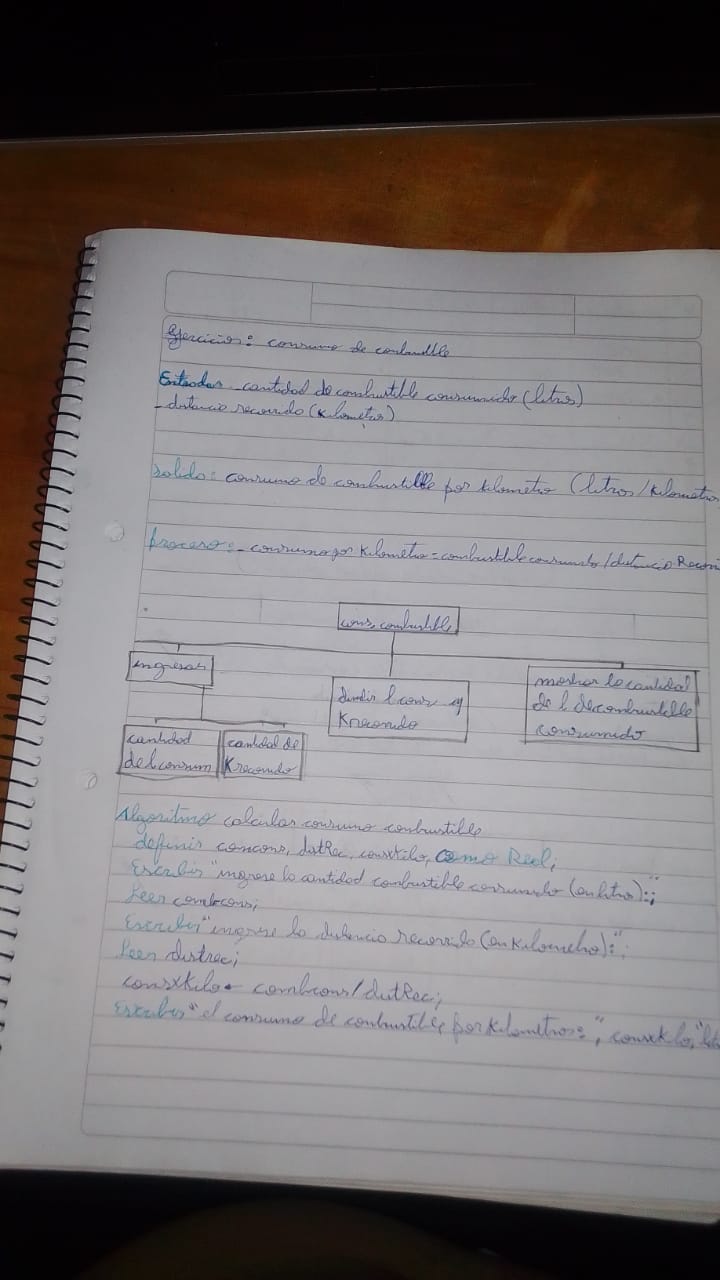 Ejercicio: consumo de combustible
Entradas - cantidad de combustible consumido (litros)
- distancia recorrido (Kilometros)
Salida: consumo de combustible por kilometro (litros/kilometro
proceso: - consumo por Kilometro = combustible consumido / distancia Recorri
cons combustible
ingresar
dividir l cons y
K recorrido
mostrar la cantidad
de l de combustible
consumido
cantidad
de l consum
cantidad de
K recorrido
Algoritmo calcular consumo combustible
definir concons, distRec, consxkilo, Como Real;
Escribir "ingrese la cantidad combustible consumido (en litro):";
Leer combcons;
Escribir "ingrese la distancia recorrido (en kilometro):";
Leer distrec;
consxKilo combcons/distRec;
Escribir "el consumo de combustible por kilometro es:", consxkilo,"lit